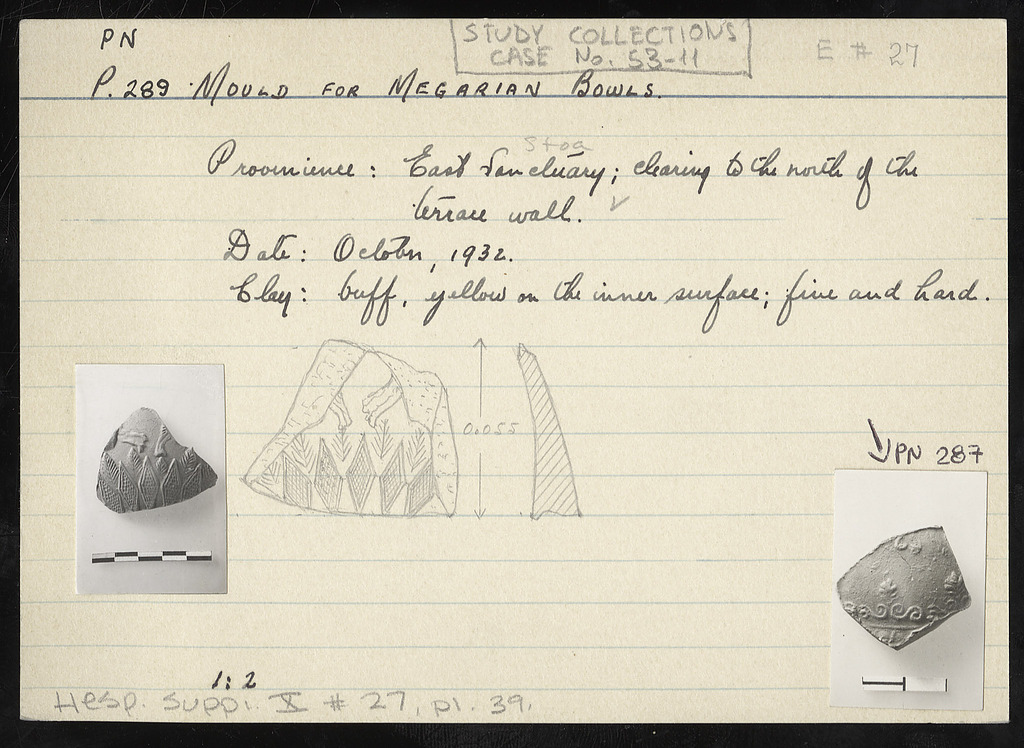 PN
STUDY COLLECTIONS
CASE No. 53-11
E # 27
P. 289 MOULD FOR MEGARIAN BOWLS.
Stoa
Provenience: East Sanctuary; clearing to the north of the
terrace wall. ✓
Date: October, 1932.
Clay: buff, yellow on the inner surface; fine and hard.
0.055
PN 287
1:2
Hesp. Suppl. X # 27, pl. 39.